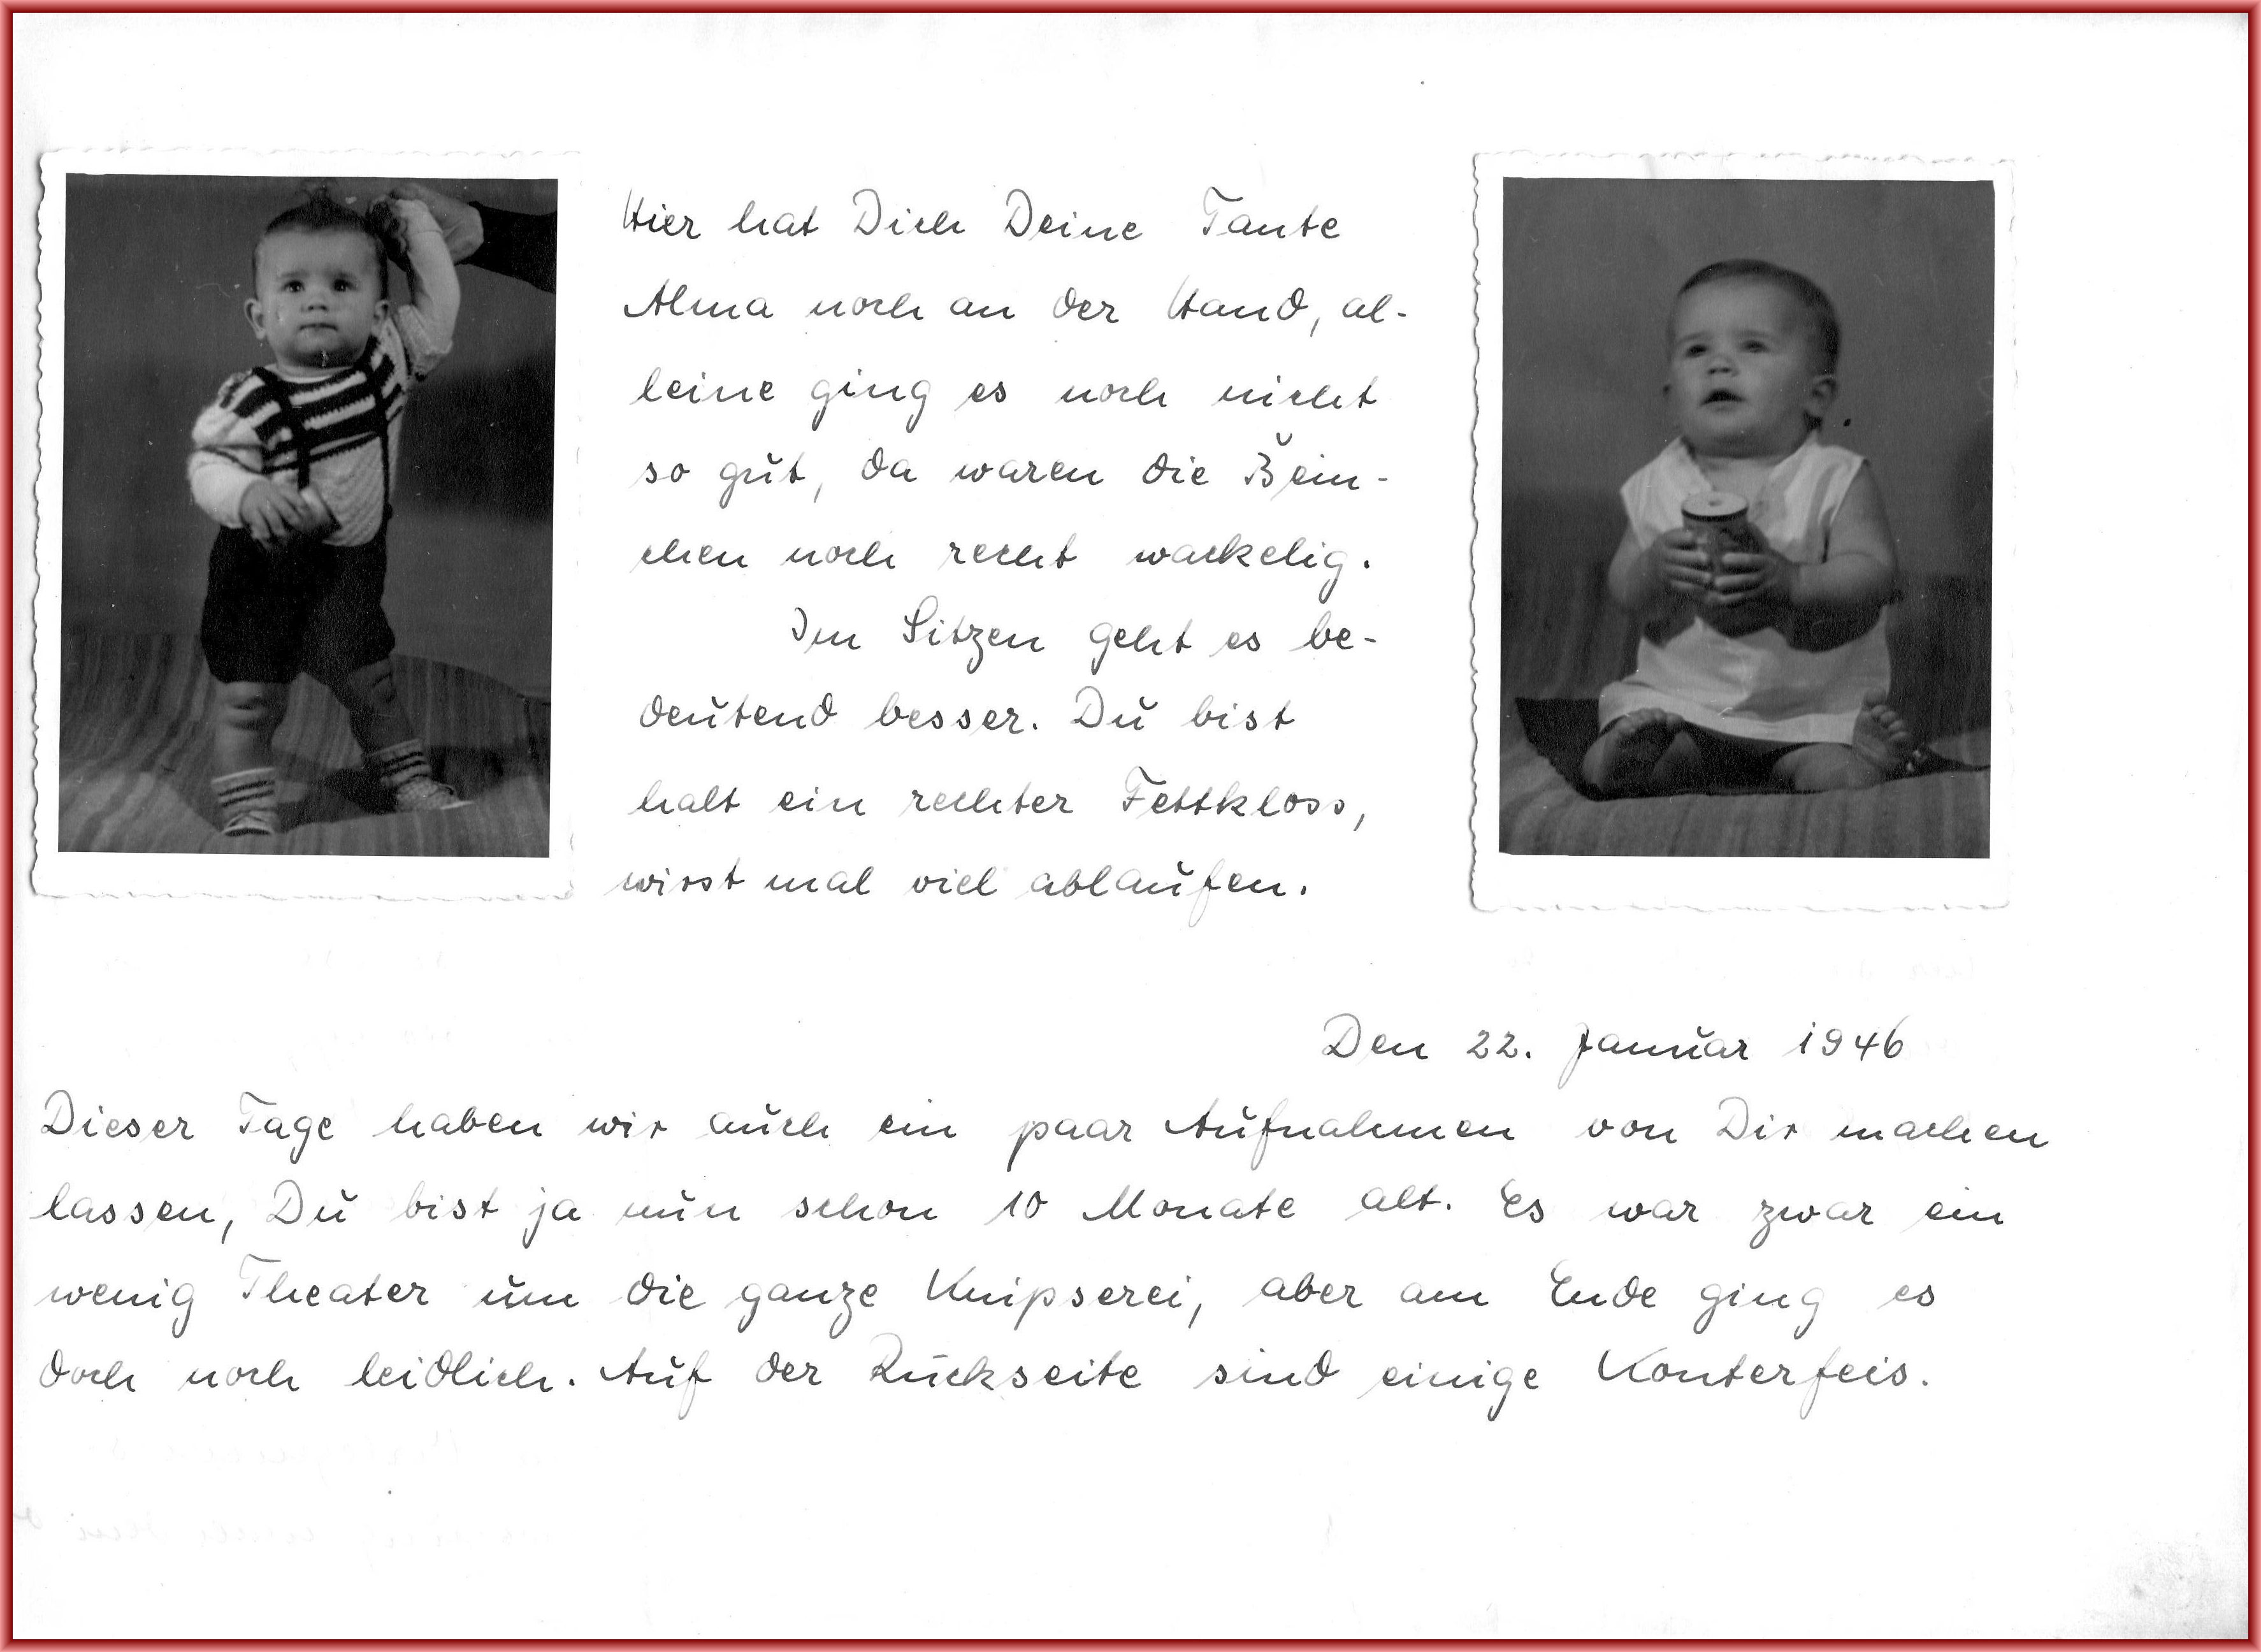 Hier hat Dich Deine Tante
Alma noch an der Hand, al-
leine ging es noch nicht
so gut, da waren die Bein-
chen noch recht wackelig.
Im Sitzen geht es be-
deutend besser. Du bist
halt ein rechter Fettkloss,
wirst mal viel ablaufen.
Den 22. Januar 1946
Dieser Tage haben wir auch ein paar Aufnahmen von Dir machen
lassen, Du bist ja nun schon 10 Monate alt. Es war zwar ein
wenig Theater um die ganze Knipserei, aber am Ende ging es
doch noch leidlich. Auf der Rückseite sind einige Konterfeis.